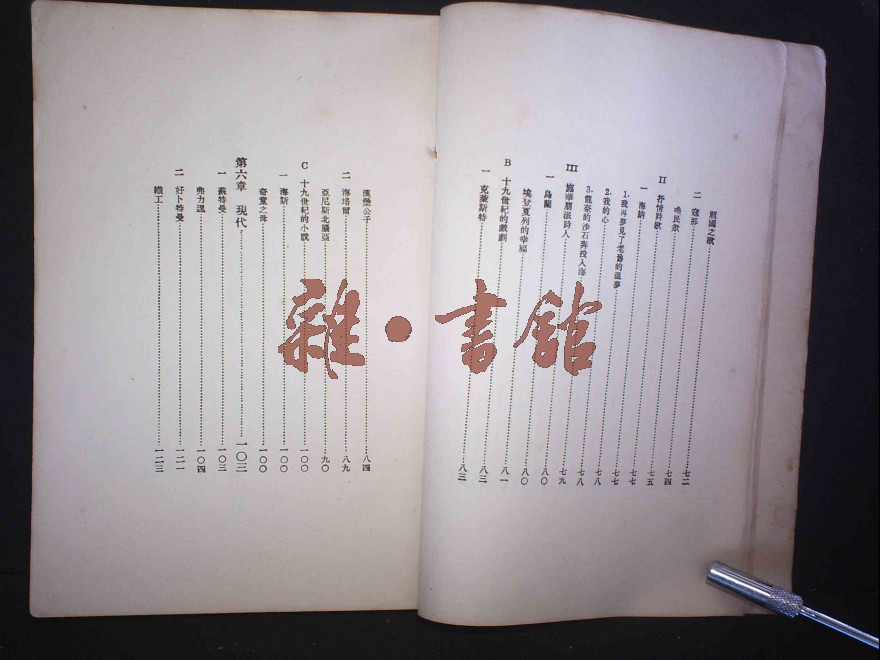 祖國之歌……七二
二 寇爾……七四
喚民衆……七五
II 抒情詩歌……七七
一 海納……七七
1.我再夢見了老舊的溫夢……七七
2.我的心……七八
3.龍奈的沙石奔投入海……七八
III 施華朋派詩人……七九
一 烏蘭……八〇
埃登夏列的幸福……八〇
B 十九世紀的戲劇……八一
一 克萊斯特……八三
漢堡公子……八四
二 海塔爾……八九
亞尼斯北腦亞……九〇
C 十九世紀的小說……一〇〇
一 海斯……一〇〇
奇童之母……一〇〇
第六章 現代……一〇三
一 蘇特曼……一〇三
弗力溫……一〇四
二 好卜特曼……一二一
織工……一二三
雜·書館